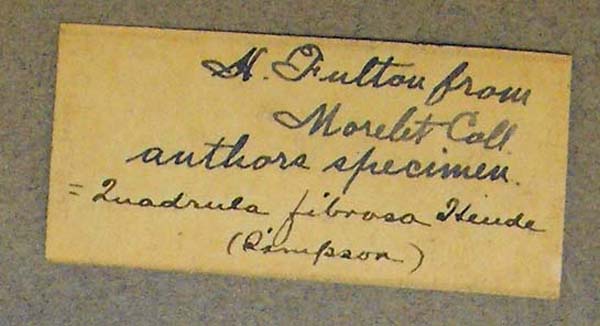 H. Fulton from
Morelet Coll.
authors specimen.
= Quadrula fibrosa Heude
(Simpson)